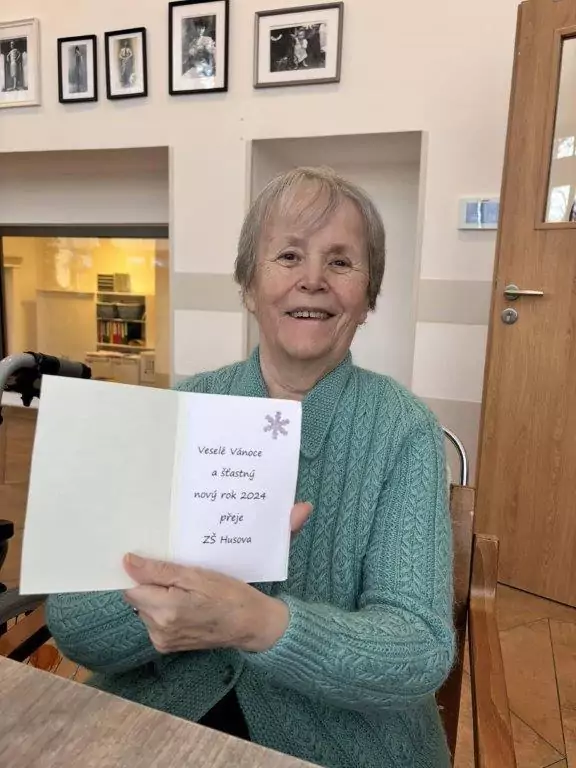 Veselé Vánoce
a šťastný
nový rok 2024
přeje
ZŠ Husova